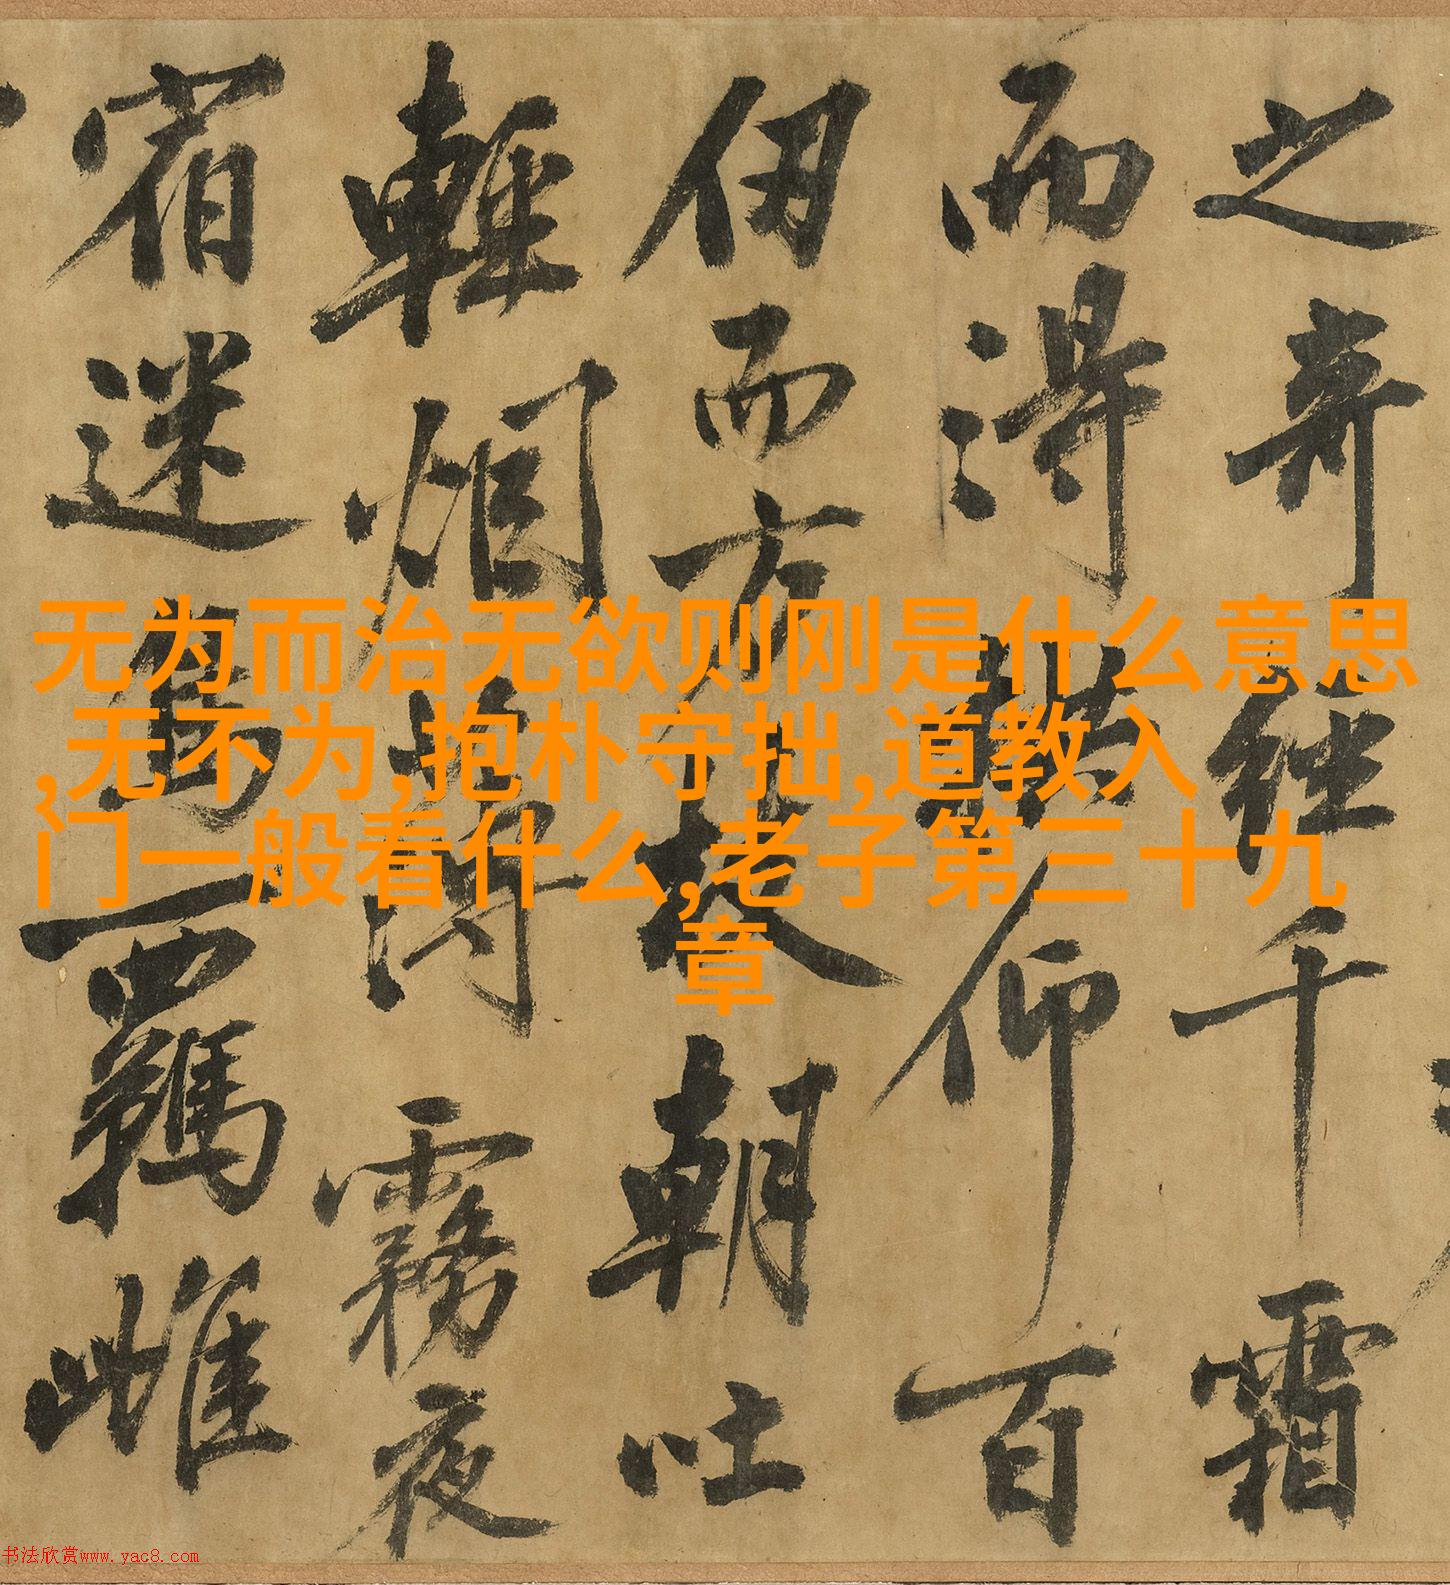 之奇經千霜
而得仰百
仞而方枝朝吐
輕烟霧夜
宿迷鳥羈雌
无为而治无欲则刚是什么意思
,无不为,抱朴守拙,道教入
门一般看什么,老子第三十九
章
书法欣赏www.yac8.com